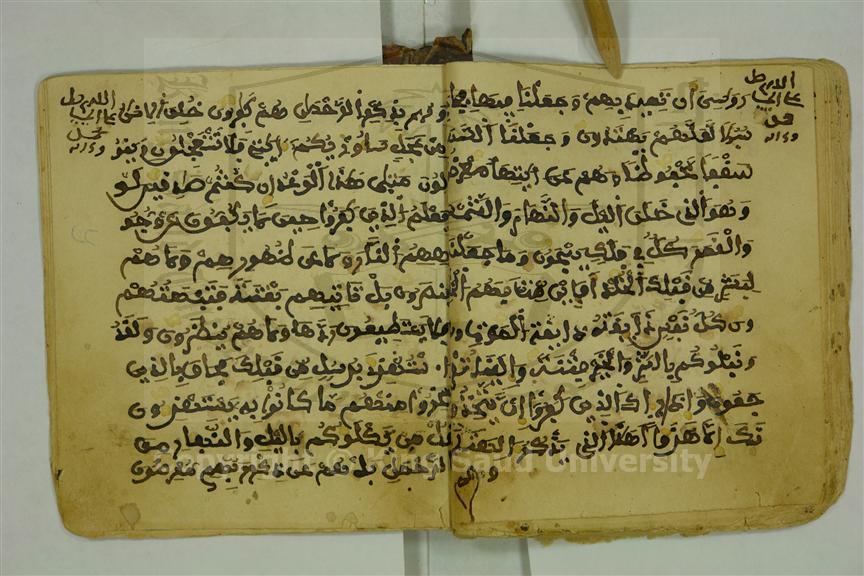 رواسي ان تميد بهم وجعلنا فيها فجا
سبلا لعلهم يهتدون وجعلنا السما
سقفا محفوظا وهم عن ايتها معرض
وهو الذي خلق اليل والنهار والشمس
والقمر كل في فلك يسبحون وما جعلنا
لبشر من قبلك الخلد أفاين مت فهم الخلد
ون كل نفس ذايقة الموت و
ونبلوكم بالشر والخير فتنة والينا تر
جعون واذا راك الذين كفروا ان يتخذو
نك الا هزؤا أهذا الذي يذكر الهتكم
وهم بذكر الرحمن هم كفرون خلق الانسن
من عجل ساوريكم ايتي فلا تستعجلون ويقو
لون متى هذا الوعد ان كنتم صدقين لو
يعلم الذين كفروا حين لا يكفون عن وجو
ههم النار ولا عن ظهورهم ولا هم
ينصرون بل تاتيهم بغتة فتبهتهم
فلا يستطيعون ردها ولا هم ينظرون ولقد
استهزئ برسل من قبلك فحاق بالذين
سخروا منهم ما كانوا به يستهزءون
قل من يكلؤكم باليل والنهار من
الرحمن بل هم عن ذكر ربهم معرضون
Copyright © King Saud University